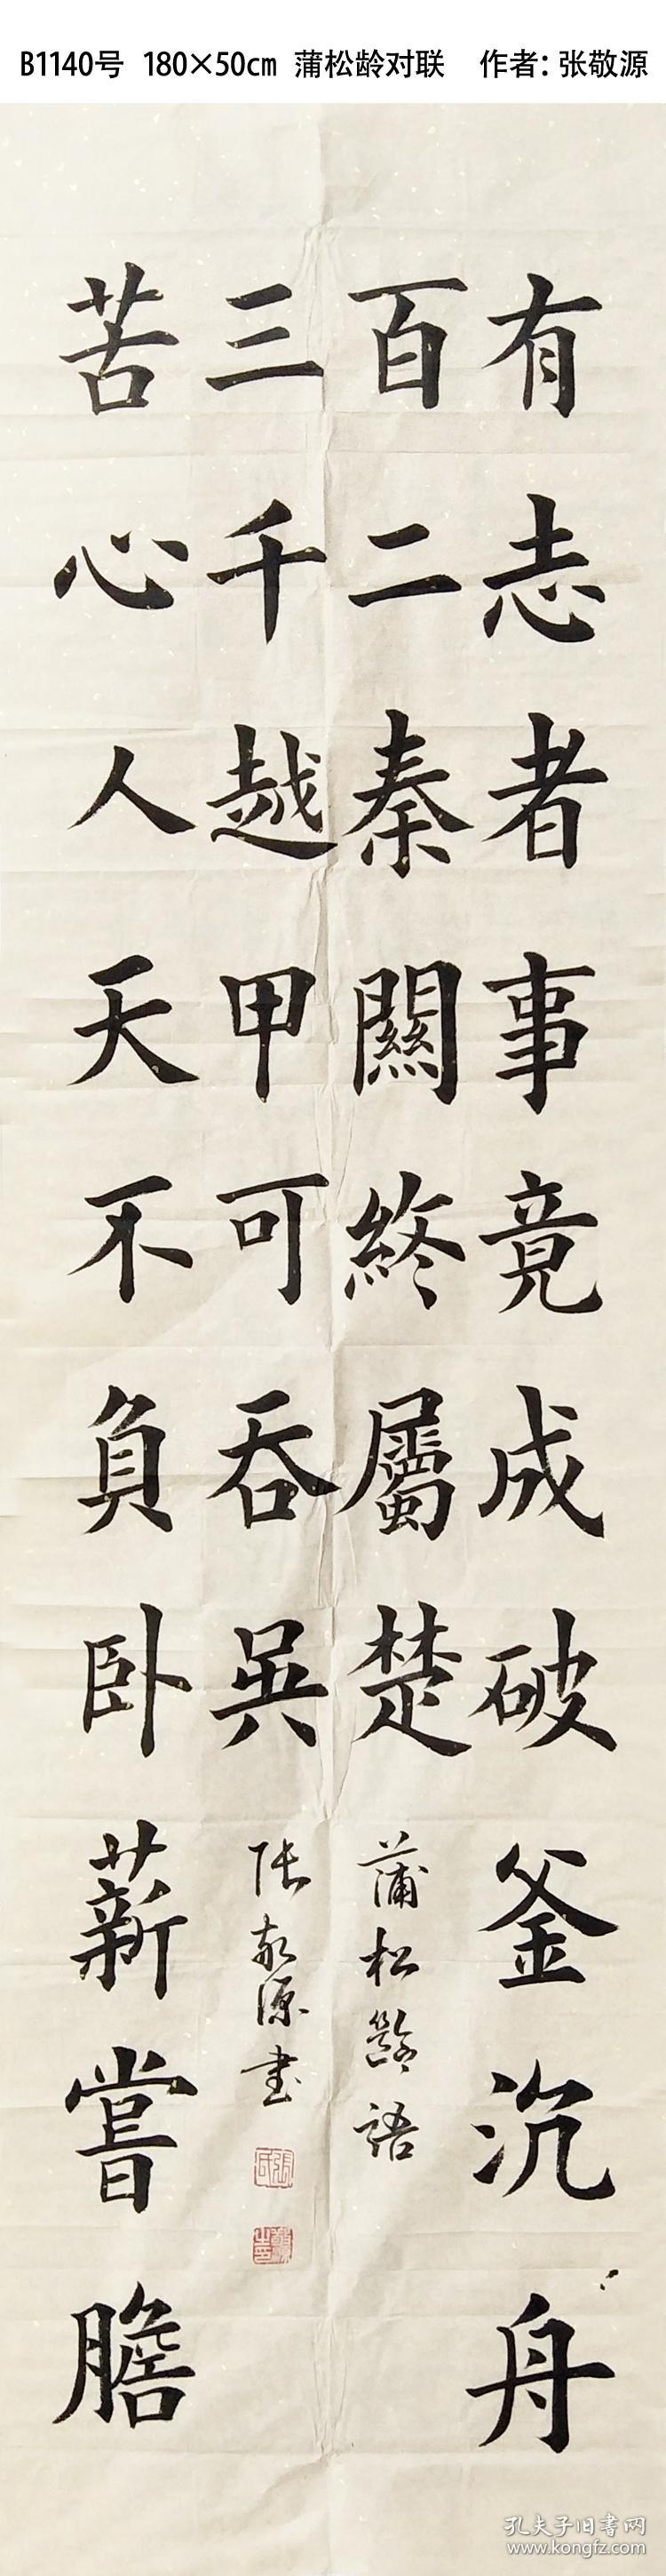 B1140号 180×50㎝ 蒲松龄对联 作者：张敬源
有志者事竟成破釜沉舟
百二秦關終屬楚
蒲松齡語
苦心人天不負卧薪嘗膽
三千越甲可吞吴
张敬源书
孔夫子旧書网
www.kongfz.com